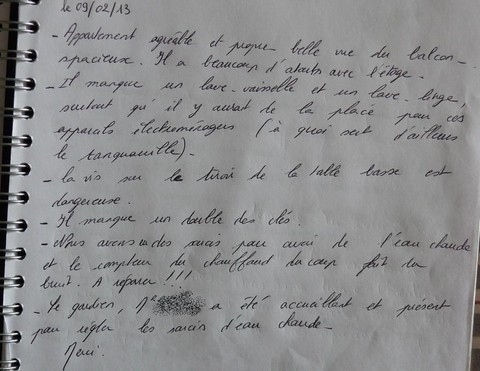 le 09/02/13
- Appartement agréable et propre - belle vue du balcon -
spacieuse. Il a beaucoup d'atouts avec l'étage -
- Il manque un lave-vaisselle et un lave-linge,
surtout qu'il y aurait de la place pour ces
appareils électroménagers (à quoi sert d'ailleurs
le ).
- La vis sur le tiroir de la table basse est
dangereuse.
- Il manque un double des clés.
- Nous avons eu des soucis pour avoir de l'eau chaude
et le compteur du du coup fait du
bruit. A réparer !!!
- Le gardien, Mr a été accueillant et présent
pour régler les soucis d'eau chaude -
Merci.